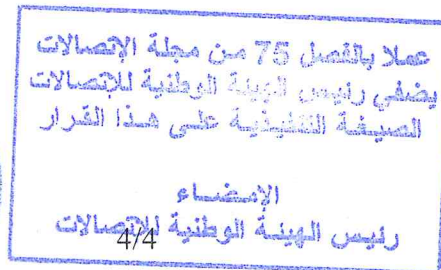 عملا بالفصل 75 من مجلة الإتصالات
يضفي رئيس الهيئة الوطنية للإتصالات
الصيغة التنفيذية على هذا القرار
الإمضاء
رئيس الهيئة الوطنية للإتصالات
4/4